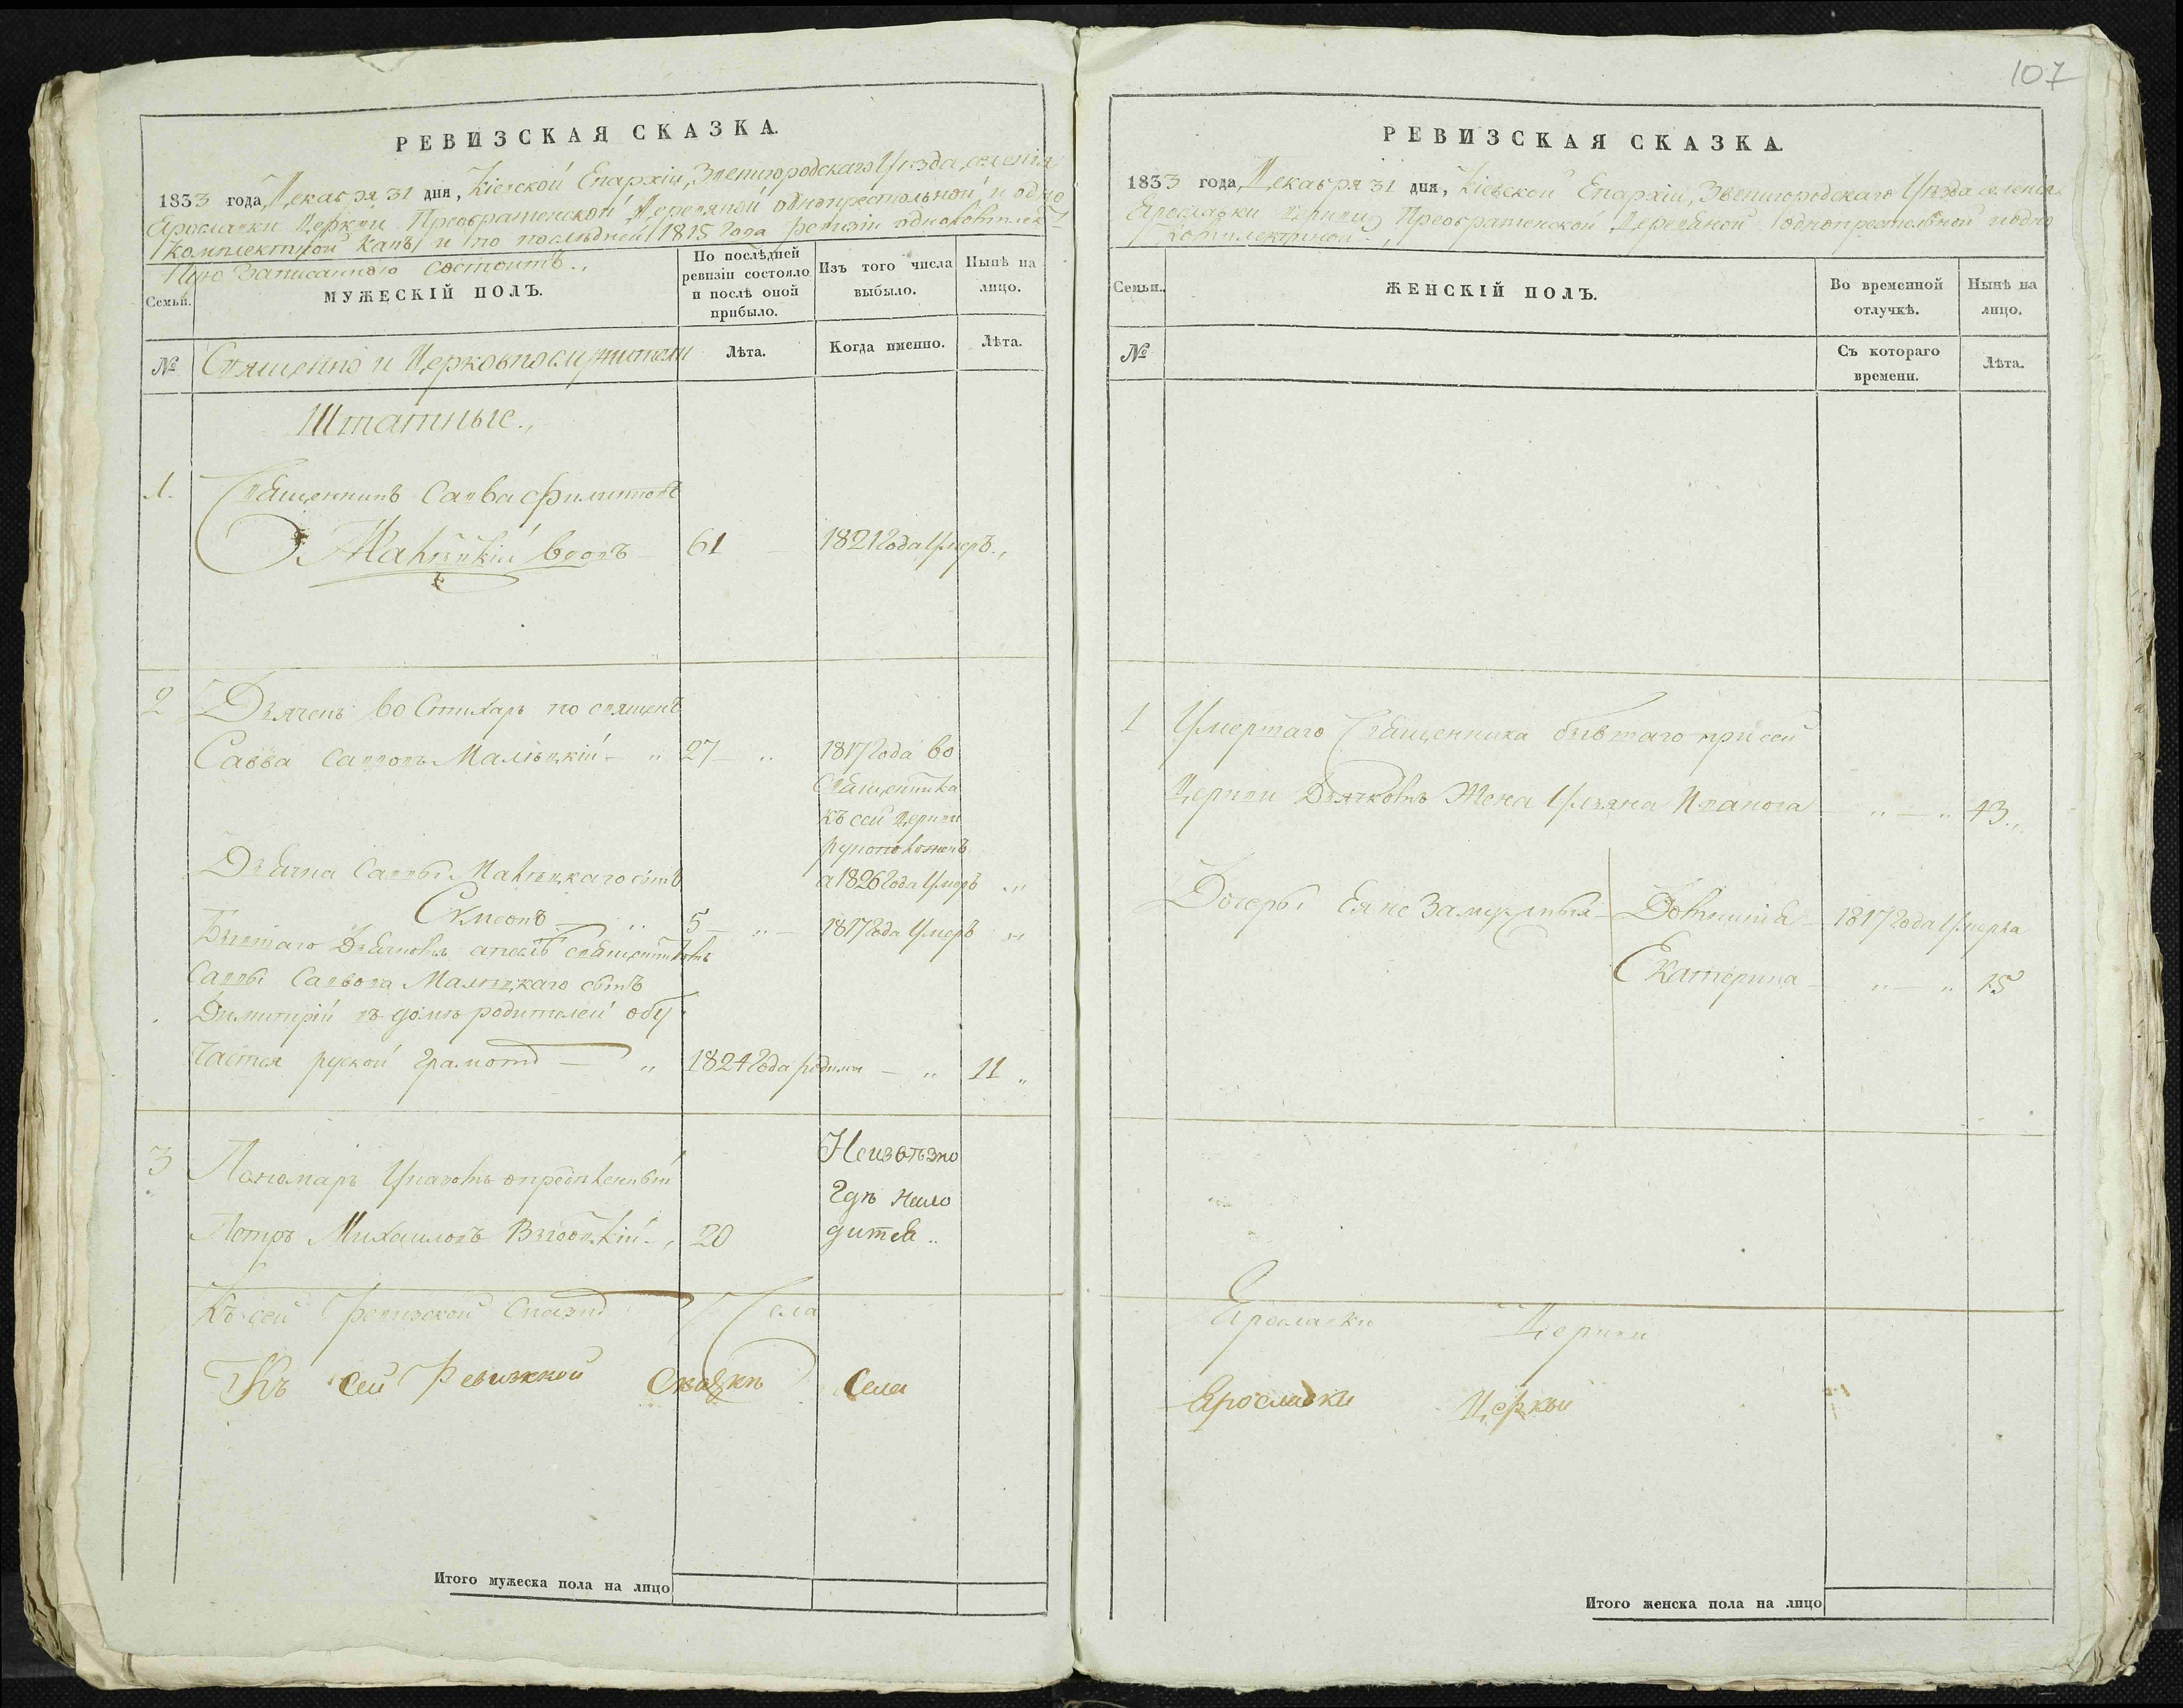 РЕВИЗСКАЯ СКАЗКА.
1833 года, Декабря 31 дня, Кіевской Епархіи, Звенигородскаго Уѣзда, селенія
Ярославки Церкви Преображенской, Деревяной однопрестольной и одно
комплектной какъ и по послѣдней 1815 года ревизіи однокомплек
тно записанною состоитъ.,
Семьи.
МУЖЕСКІЙ ПОЛЪ.
По послѣдней ревизіи состояло и послѣ оной прибыло.
Изъ того числа выбыло.
Нынѣ на лицо.
№
Священно и Церковнослужители
Лѣта.
Когда именно.
Лѣта.
Штатные.,
1. Священникъ Савва Филиповъ
Малѣцкій вдовъ 61 1821 года Умеръ.,
2 Дьячекъ во Стихарь посвященъ
Савва Саввовъ Малѣцкій - „ 27 - „ 1817 года во
Священника
къ сей Церкви
рукоположенъ
а 1826 года Умеръ „
Дьячка Саввы Малѣцкаго сынъ
Симеонъ - „ 5 - „ - 1817 года Умеръ „
Бывшаго Дьячковъ а послѣ священникомъ
Саввы Саввова Малѣцкаго сынъ
Димитрій въ домѣ родителей обу
чается руской грамотѣ - „ 1824 года родился - „ 11 „
3 Пономарь Указомъ опредѣленный
Петръ Михаиловъ 20
Неизвѣзно
гдѣ нахо
дится „
Къ сей ревизской Сказкѣ Села
Къ сей Ревизкой Сказкѣ Села
Итого мужеска пола на лицо
107
РЕВИЗСКАЯ СКАЗКА.
1833 года, Декабря 31 дня, Кіевской Епархіи, Звенигородскаго Уѣзда селенія
Ярославки Церкви Преображенской, Деревяной однопрестольной и одно
комплектной.,
Семьи.
ЖЕНСКІЙ ПОЛЪ.
Во временной отлучкѣ.
Нынѣ на лицо.
№
Съ котораго времени.
Лѣта.
1 Умершаго Священника бывшаго при сей
Церкви Дьячковъ Жена Ульяна Иванова - „ - „ 43 „
Дочеры Ея не Замужныя - Домникія - 1817 года Умерла
Екатерина - „ - „ 15
Ярославки Церкви
Ярославки Церкви
Итого женска пола на лицо